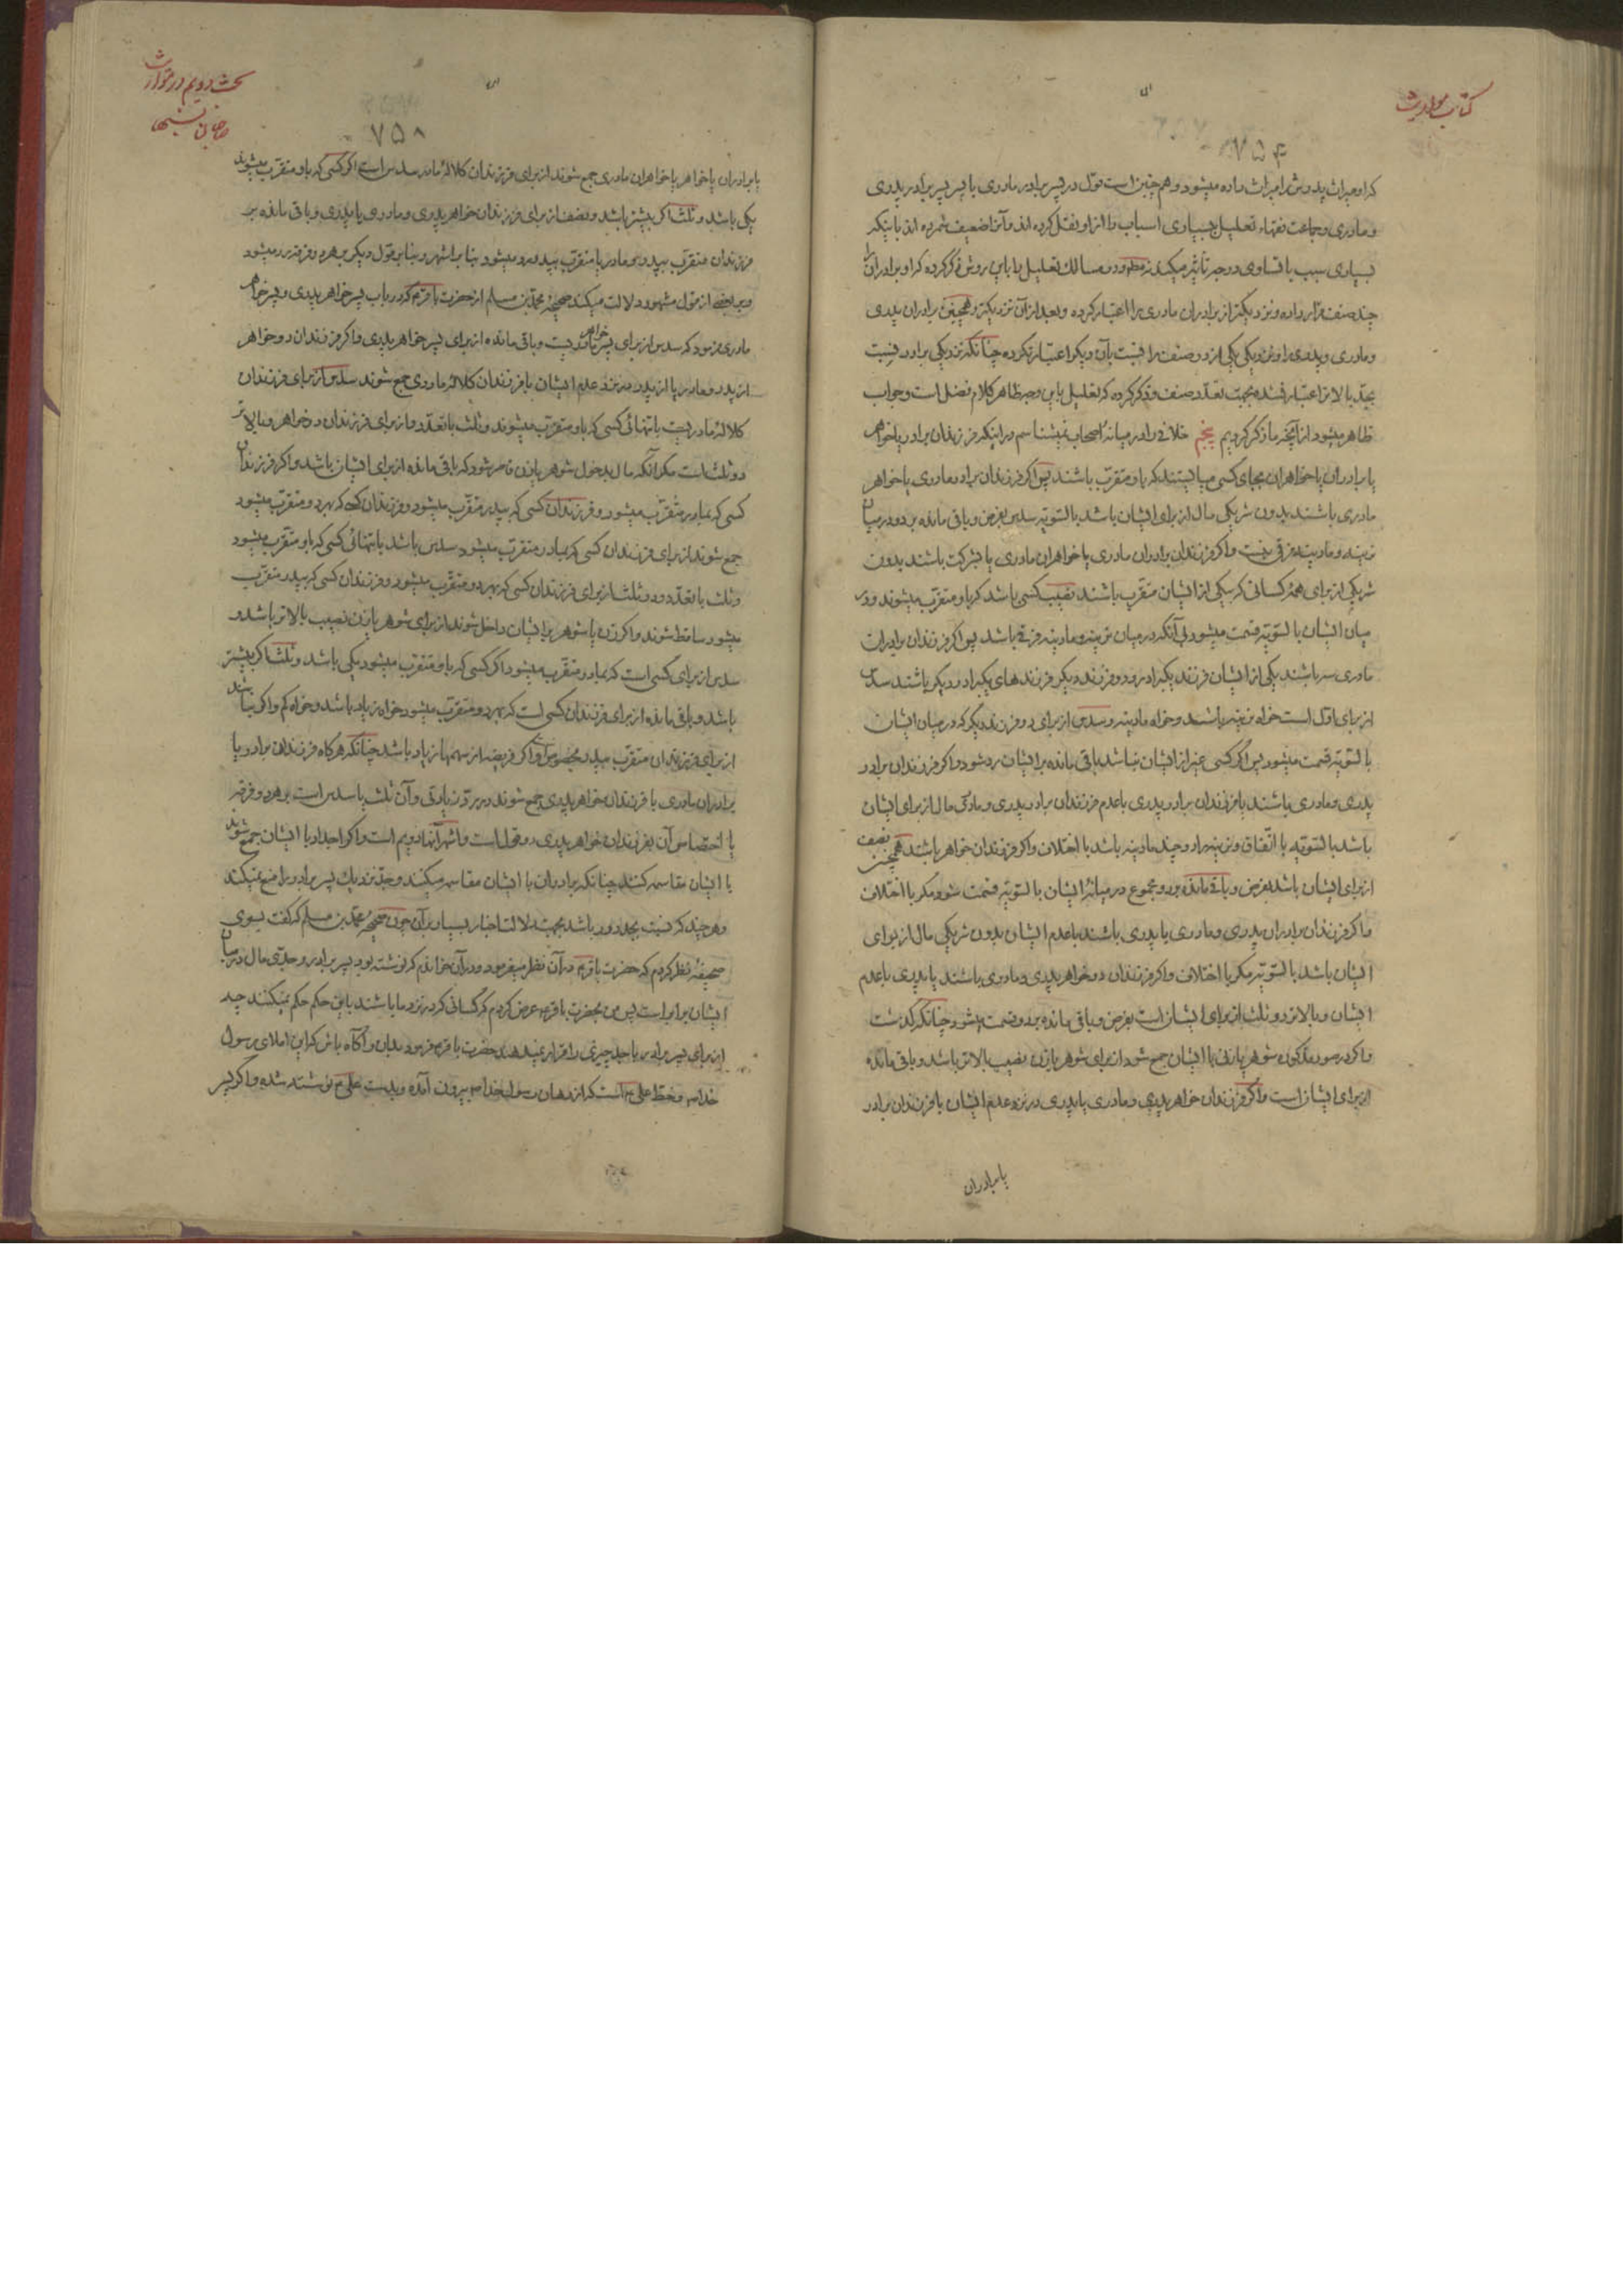 کتاب مواریث
۷۵۴
که او میراث پدرش را میراث داده میشود و هم چنین است قول در پسر برادر مادری با پسر پسر برادر پدری
و مادری و جماعت فقهاء تعلیل به بسیاری اسباب را از او نقل کرده اند و آنرا ضعیف شمرده اند باینکه
بسیاری سبب با تساوی درجه تاثیر میکند نه مطلق و در مسالک تعلیل را باین روش ذکر کرده که او برادران را
چند صنف قرار داده و نزدیکتر از برادران مادری را اعتبار کرده و بعد از آن نزدیکتر و همچنین برادران پدری
و مادری و پدری را و نزدیکی یکی از دو صنف را نسبت بآن دیگر اعتبار نکرده چنانکه نزدیکی برادر نسبت
بجد بالاتر اعتبار نشده بجهت تعدد صنف و ذکر کرده که تعلیل باین وجه ظاهر کلام فضل است و جواب
ظاهر میشود از آنچه ما ذکر کردیم پنجم خلافی را در میانهٔ اصحاب نمیشناسم در اینکه فرزندان برادر یا خواهر
یا برادران یا خواهران بجای کسی میایستند که باو متقرب باشند پس اگر فرزندان برادر مادری یا خواهر
مادری باشند بدون شریکی مال از برای ایشان باشد بالسویه سدس بفرض و باقی مانده برد و در میان
نرینه و مادینه فرقی نیست و اگر فرزندان برادران مادری یا خواهران مادری یا بشرکت باشند بدون
شریکی از برای همهٔ کسانی که بیکی از ایشان متقرب باشند نصیب کسی باشد که باو متقرب میشوند و در
میان ایشان بالسویه قسمت میشود بی آنکه در میان نرینه و مادینه فرقی باشد پس اگر فرزندان برادران
مادری سه باشند یکی از ایشان فرزند یکبرادر و دو فرزند دیگر فرزندهای یکبرادر دیگر باشند سدس
از برای اول است خواه نرینه باشد و خواه مادینه و سدس از برای دو فرزند دیگر که در میان ایشان
بالسویه قسمت میشود پس اگر کسی غیر از ایشان نباشد باقی مانده بر ایشان رد شود و اگر فرزندان برادر
پدری و مادری باشند یا فرزندان برادر پدری با عدم فرزندان برادر پدری و مادری مال از برای ایشان
باشد بالسویه با اتفاق و نرینه را دو چند مادینه باشد با اختلاف و اگر فرزندان خواهر باشند همچنین نصف
از برای ایشان باشد بفرض و باقی مانده برد و مجموع در میانهٔ ایشان بالسویه قسمت شود مگر با اختلاف
و اگر فرزندان برادران پدری و مادری یا پدری باشند با عدم ایشان بدون شریکی مال از برای
ایشان باشد بالسویه مگر با اختلاف و اگر فرزندان دو خواهر پدری و مادری باشند یا پدری با عدم
ایشان و بالاتر دو ثلث از برای ایشان است بفرض و باقی مانده برد و قسمت میشود چنانکه گذشت
و اگر در صور مذکوره شوهر یا زنی با ایشان جمع شود از برای شوهر یا زن نصیب بالاتر باشد و باقی مانده
از برای ایشان است و اگر فرزندان خواهر پدری و مادری یا پدری در نزد عدم ایشان با فرزندان برادر
یا برادران
بحث دویم در توارث
صاحبان نسبتها
۷۵۸
یا برادران یا خواهر یا خواهران مادری جمع شوند از برای فرزندان کلالهٔ مادر سدس است اگر کسی که باو متقرب میشوند
یکی باشد و ثلث اگر بیشتر باشد و نصف از برای فرزندان خواهر پدری و مادری یا پدری و باقی مانده بر
فرزندان متقرب بپدر و مادر یا متقرب بپدر رد میشود بنا بر اشهر و بنا بر قول دیگر بر هر دو فرقه رد میشود
و بر بعضی از قول مشهور دلالت میکند صحیحهٔ محمد بن مسلم از حضرت باقر ع که در باب پسر خواهر پدری و پسر خواهر
مادری فرمود که سدس از برای پسر خواهر مادریت و باقی مانده از برای پسر خواهر پدری و اگر فرزندان دو خواهر
از پدر و مادر یا از پدر در نزد عدم ایشان با فرزندان کلالهٔ مادری جمع شوند سدس از برای فرزندان
کلالهٔ مادریت با تنهائی کسی که باو متقرب میشوند و ثلث با تعدد و از برای فرزندان دو خواهر و بالاتر
دو ثلث است مگر آنکه مال بدخول شوهر یا زن قاصر شود که باقی مانده از برای ایشان باشد و اگر فرزندان
کسی که بمادر متقرب میشود و فرزندان کسی که بپدر متقرب میشود و فرزندان کسی که بهر دو متقرب میشود
جمع شوند از برای فرزندان کسی که بمادر متقرب میشود سدس باشد با تنهائی کسی که باو متقرب میشود
و ثلث با تعدد و دو ثلث از برای فرزندان کسی که بهر دو متقرب میشود و فرزندان کسی که بپدر متقرب
میشود ساقط شوند و اگر زن یا شوهر بر ایشان داخل شوند از برای شوهر یا زن نصیب بالاتر باشد و
سدس از برای کسی است که بمادر متقرب میشود اگر کسی که باو متقرب میشود یکی باشد و ثلث اگر بیشتر
باشد و باقی مانده از برای فرزندان کسی است که بهر دو متقرب میشود خواه زیاد باشد و خواه کم و اگر نباشند
از برای فرزندان متقرب بپدر مخصوص است و اگر فریضه از سهمها زیاد باشد چنانکه هرگاه فرزندان برادر یا
برادران مادری با فرزندان خواهر پدری جمع شوند در رد زیادتی و آن ثلث یا سدس است بر هر دو فرقه
یا اختصاص آن بفرزندان خواهر پدری دو قول است و اشهر آنها دویم است و اگر اجداد با ایشان جمع شوند
با ایشان مقاسمه کنند چنانکه برادران با ایشان مقاسمه میکنند و جد نزدیک پسر برادر را منع نمیکند
و هر چند که نسبت بجد دور باشد بجهت دلالت اخبار بسیار بر آن چون صحیحهٔ محمد بن مسلم که گفت بسوی
صحیفهٔ نظر کردم که حضرت باقر ع در آن نظر میفرمود و در آن خواندم که نوشته بود پسر برادر و جدی مال در میان
ایشان برابر است پس من بحضرت باقر ع عرض کردم که کسانی که در نزد ما باشند باین حکم حکم نمیکنند چه
از برای پسر برادر با جد چیزی را قرار نمیدهند حضرت باقر ع فرمود بدان و آگاه باش که این املای رسول
خدا ص و خط علی ع است که از دهان رسول خدا ص بیرون آمده و بدست علی ع نوشته شده و اگر پسر